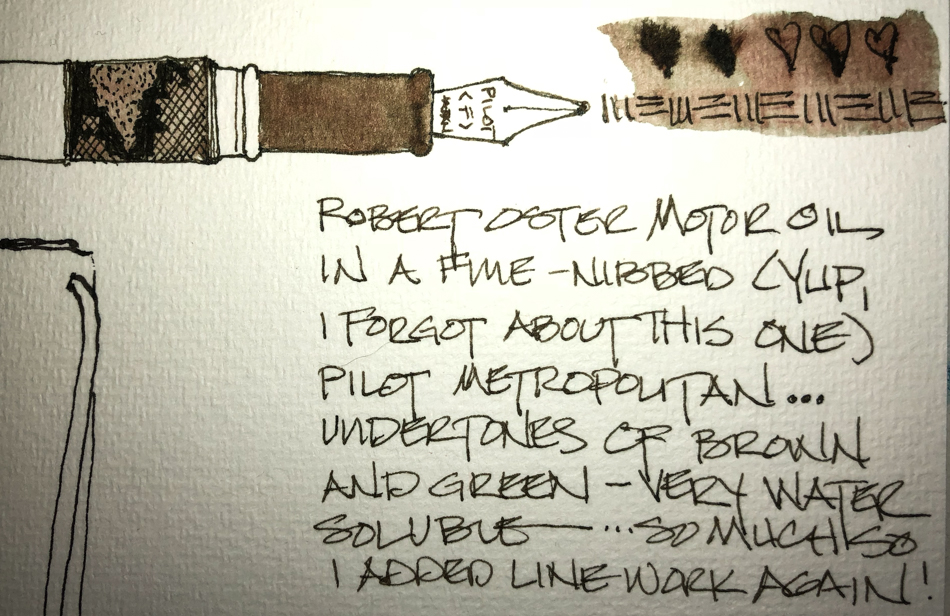 PILOT
<F>
ROBERT OSTER MOTOR OIL
IN A FINE-NIBBED (YUP,
I FORGOT ABOUT THIS ONE)
PILOT METROPOLITAN...
UNDERTONES OF BROWN
AND GREEN - VERY WATER
SOLUBLE - ...SO MUCH SO
I ADDED LINEWORK AGAIN!